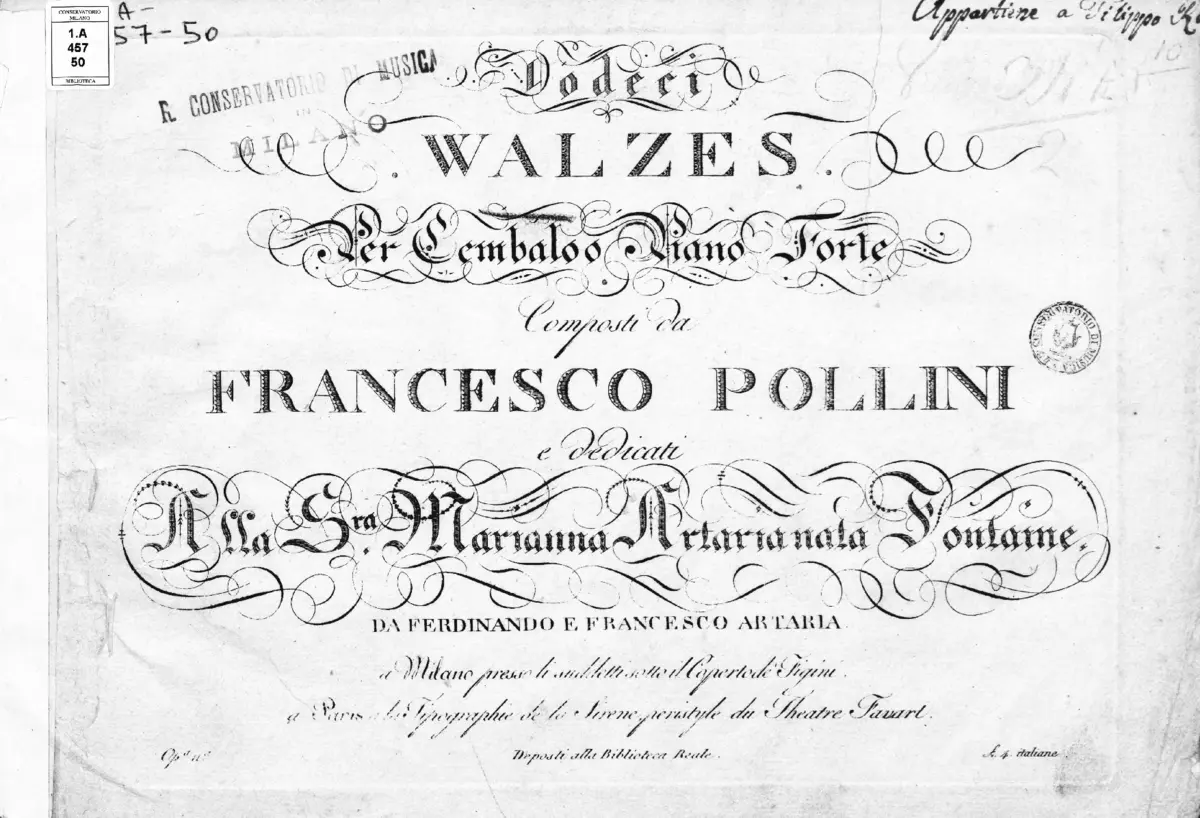 CONSERVATORIO
MILANO
1.A
457
50
BIBLIOTECA
A-
57-50
Appartiene a Filippo
10
R. CONSERVATORIO DI MUSICA
IN
MILANO
Dodeci
WALZES.
Per Cembalo o Piano Forte
Composti da
CONSERVATORIO DI MUSICA
FRANCESCO POLLINI
e dedicati
Alla Sra. Marianna Artaria nata Fontaine.
DA FERDINANDO E FRANCESCO ARTARIA
a Milano presso li suddetti sotto il Coperto de' Figini.
a Paris a la Tipographie de la Sirene, peristyle du Theatre Favart.
Opa. na.
Deposti alla Biblioteca Reale.
£. 4. italiane